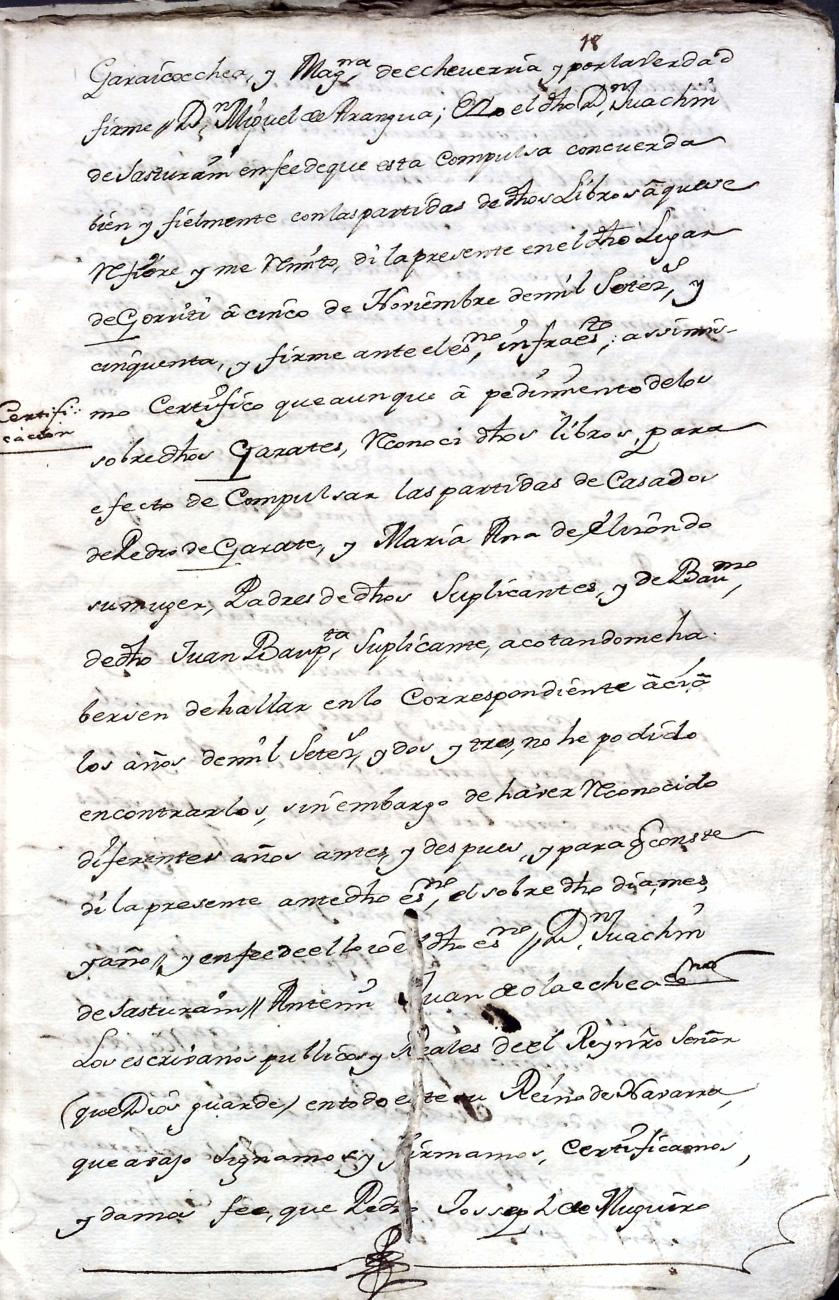 18
Garaicoechea, y Magna, de echeverria y por la Verdad
firme // Dn Miquel de Arangua; Yo el dho Dn Juachin
de Sasturain en fee de que esta Compulsa concuerda
bien y fielmente con las partidas de dhos Libros â que se
Refiere y me Rmto, di la presente en el dho Lugar
de Gorriti â cinco de Noviembre de mil Setezs, y
cinquenta, y firme ante el esno, infraesto; assimis-
Certifi-
cacion
mo Certifico que aunque â pedimiento de los
sobredhos Garates, Reconoci dhos libros, para
efecto de Compulsar las partidas de Casados
de Pedro de Garate, y Maria Ana de Elirondo
su muger, Padres de dhos Suplicantes, y de Baumo,
de dho Juan Baupta, Suplicante, acotandome ha
bersen de hallar en lo Correspondiente âcia
los años de mil Setezs, y dos y tres, no he podido
encontrarlos, sin embargo de haver Reconocido
diferentes años antes, y despues, y para q conste
di la presente ante dho esno, el sobre dho dia, mes,
y año // y en fee de ello io el dho esno // Dn Juachin
de Sasturain // Antemi Juan de olaechea esno
Los escrivanos publicos y Reales de el Rey nro Señor
(que Dios guarde) en todo este su Reino de Navarra,
que avajo Signamos, y firmamos, Certificamos,
y damos fee, que Pedro Josseph de Muguiro